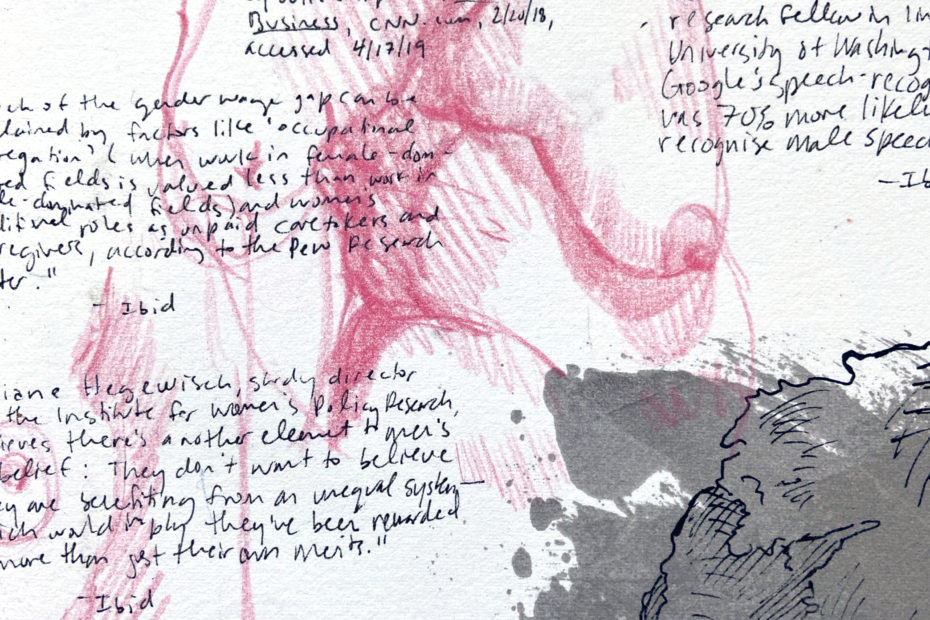 Business, CNN.com, 2/20/18,
accessed 4/17/19
research fellow in lin
University of Washingt
Google's speech-recog
was 70% more likel
recognise male speec
—Ib
ch of the gender wage gap can be
lained by factors like 'occupational
regation' (when work in female-dom-
ed fields is valued less than work in
le-dominated fields) and women's
ditional roles as unpaid caretakers and
regivers, according to the Pew Research
ter."
- Ibid
iane Hegewisch, study director
the Institute for Women's Policy Research,
ieves there's another element to men's
belief: They don't want to believe
ey are benefiting from an unequal system—
ich would imply they've been rewarded
more than just their own merits."
-Ibid